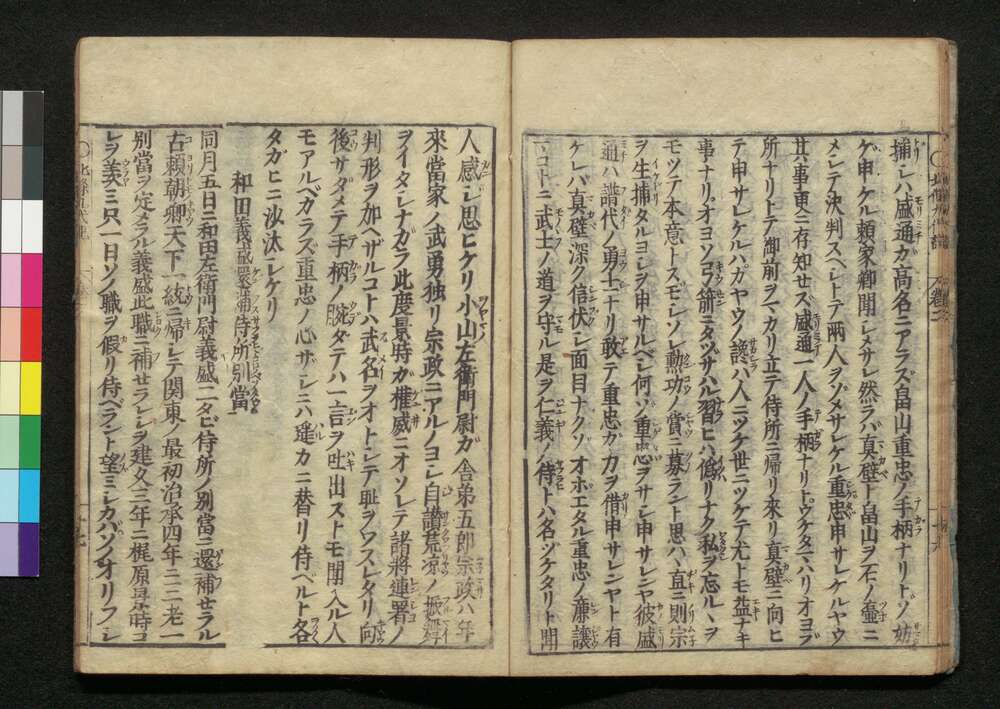 捕シハ盛通カ高名ニアラズ畠山重忠ノ手柄ナリトソ妨
ゲ申シケル頼家卿聞シメサレ然ラバ真壁ト畠山ヲ石ノ壷ニ
メシテ決判スベシトテ両人ヲソメサレケル重忠申サレケルヤウ
其事更ニ存知セズ盛通一人ノ手柄ナリトウケタマハリオヨブ
所ナリトテ御前ヲマカリ立テ侍所ニ帰リ來リ真壁ニ向ヒ
テ申サレケルハカヤウノ讒ハ人ニツケ世ニツケテ尤トモ益ナキ
事ナリオヨソ弓箭ニタヅサハル習ヒハ偽リナク私ヲ忘ルヽヲ
モツテ本意トスモシソレ勲功ノ賞ニ募ラント思ハヽ直ニ則宗
ヲ生捕タルヨシヲ申サルベシ何ソ重忠ヲサシ申サレシヤ彼盛
通ハ譜代ノ勇士ナリ敢テ重忠ガカヲ借申サレシヤト有
ケレバ真壁深ク信伏シ面目ナクソオボエタル重忠ノ廉譲
マコトニ武士ノ道ヲ守ル是ヲ仁義ノ侍ト名ヅケタリト聞
人感ジ思ヒケリ小山左衛門尉ガ舎弟五郎宗政ハ年
來當家ノ武勇独リ宗政ニアルノヨシ自讃荒凉ノ振舞
ヲイタシナガラ此度景時ガ權威ニオソレテ諸將連署ノ
判形ヲ加ヘザルコトハ武名ヲオトシテ耻ヲワスレタリ向
後サダメテ手柄ノ腕ダテハ一言ヲ吐出ストモ聞入ル人
モアルベカラズ重忠ノ心ザシニハ遥カニ替リ侍ベルト各
タガヒニ沙汰シケリ
和田義盛還補侍所別當
同月五日ニ和田左衛門尉義盛二タビ侍所ノ別當ニ還補セラル
古頼朝卿天下一統ニ帰シテ関東ノ最初治承四年ニ三老一
別當ヲ定メラル義盛此職ニ補セラレシヲ建久三年ニ梶原景時コ
レヲ羨ミ只一日ソノ職ヲ假リ侍ベラント望ミシカバソノオリフシ